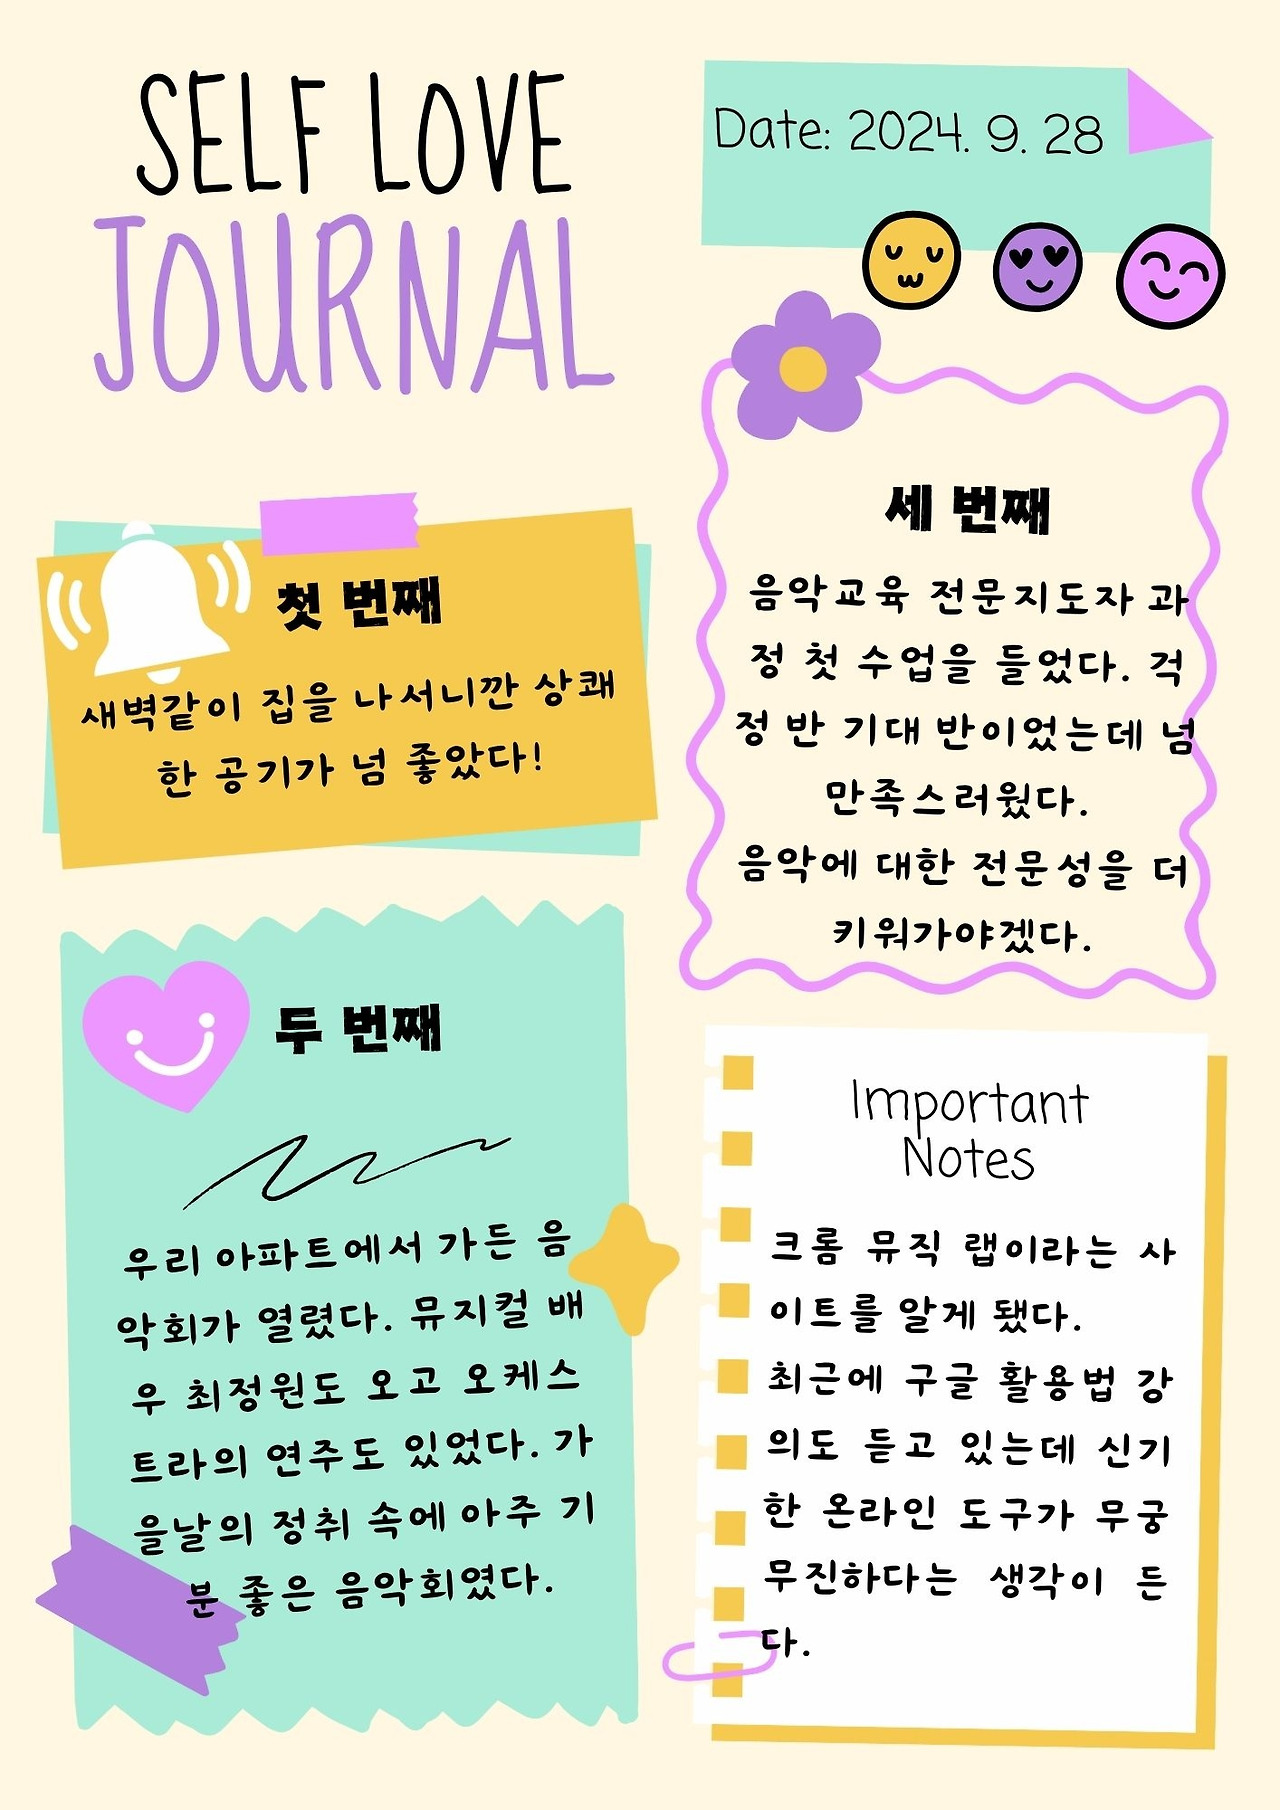 SELF LOVE
JOURNAL
Date: 2024. 9. 28
첫 번째
새벽같이 집을 나서니깐 상쾌
한 공기가 넘 좋았다!
두 번째
우리 아파트에서 가든 음
악회가 열렸다. 뮤지컬 배
우 최정원도 오고 오케스
트라의 연주도 있었다. 가
을날의 정취 속에 아주 기
분 좋은 음악회였다.
세 번째
음악교육 전문지도자 과
정 첫 수업을 들었다. 걱
정 반 기대 반이었는데 넘
만족스러웠다.
음악에 대한 전문성을 더
키워가야겠다.
Important
Notes
크롬 뮤직 랩이라는 사
이트를 알게 됐다.
최근에 구글 활용법 강
의도 듣고 있는데 신기
한 온라인 도구가 무궁
무진하다는 생각이 든
다.